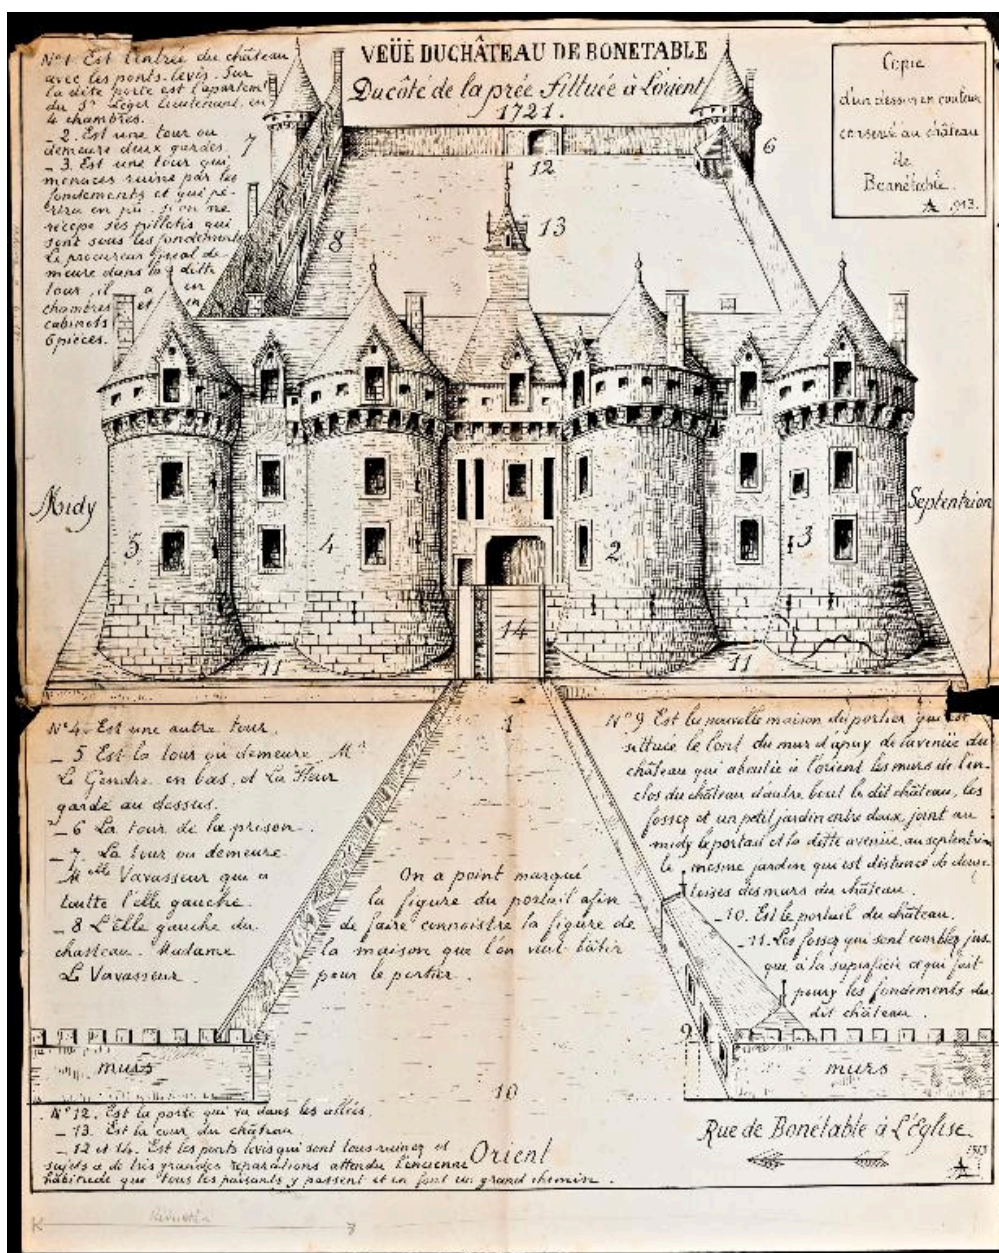 VEÜE DU CHÂTEAU DE BONETABLE
Du côté de la prée sittuée à Lorient
1721.
Copie
d'un dessin en couleur
conservé au château
de
Bonnétable.
1913.
N°1. Est l'entrée du château
avec les ponts-levis. Sur
la dite porte est l'apartemt
du Sr Léger Lieutenant, en
4 chambres.
_ 2. Est une tour ou
demeure deux gardes.
_ 3. Est une tour qui
menaces ruine par les
fondements et qui pé-
rira en peu si on ne
récepe ses pillotis qui
sont sous les fondements
Le procureur fiscal de-
meure dans la ditte
tour, il a un
chambres et un
cabinets
6 pièces.
7
6
12
13
8
Midy
Septentrion
5
4
2
3
14
11
11
1
N°4. Est une autre tour.
_ 5 Est la tour où demeure Mr
Le Gendre en bas, et La Fleur
garde au dessus.
_ 6 La tour de la prison.
_ 7. La tour ou demeure
Melle Vavasseur qui a
toutte l'elle gauche.
_ 8 L'Elle gauche du
chasteau. Madame
Le Vavasseur.
On a point marqué
la figure du portail afin
de faire connoistre la figure de
la maison que l'on veut bâtir
pour le portier.
N°9 Est la nouvelle maison du portier qui est
sittuée le lont du mur d'apuy de l'avenüe du
château qui aboutie à l'orient les murs de l'en-
clos du château d'autre bout le dit château, les
fossez et un petit jardin entre deux, joint au
midy le portail et la ditte avenüe, au septentrion
le mesme jardin qui est distancé de deux
toises des murs du château.
_ 10. Est le portail du château.
_ 11. Les fossez qui sont comblez jus
que à la superficie ce qui fait
poury les fondements du
dit château.
9
murs
murs
10
N°12. Est la porte qui va dans les allées.
_ 13. Est la cour du château
_ 12 et 14. Est les ponts levis qui sont tous ruinez et
sujets a de très grandes réparations attendu l'encienne
habitude que tous les paisants y passent et en font un grand chemin.
Orient
Rue de Bonétable à L'Eglise.
1913